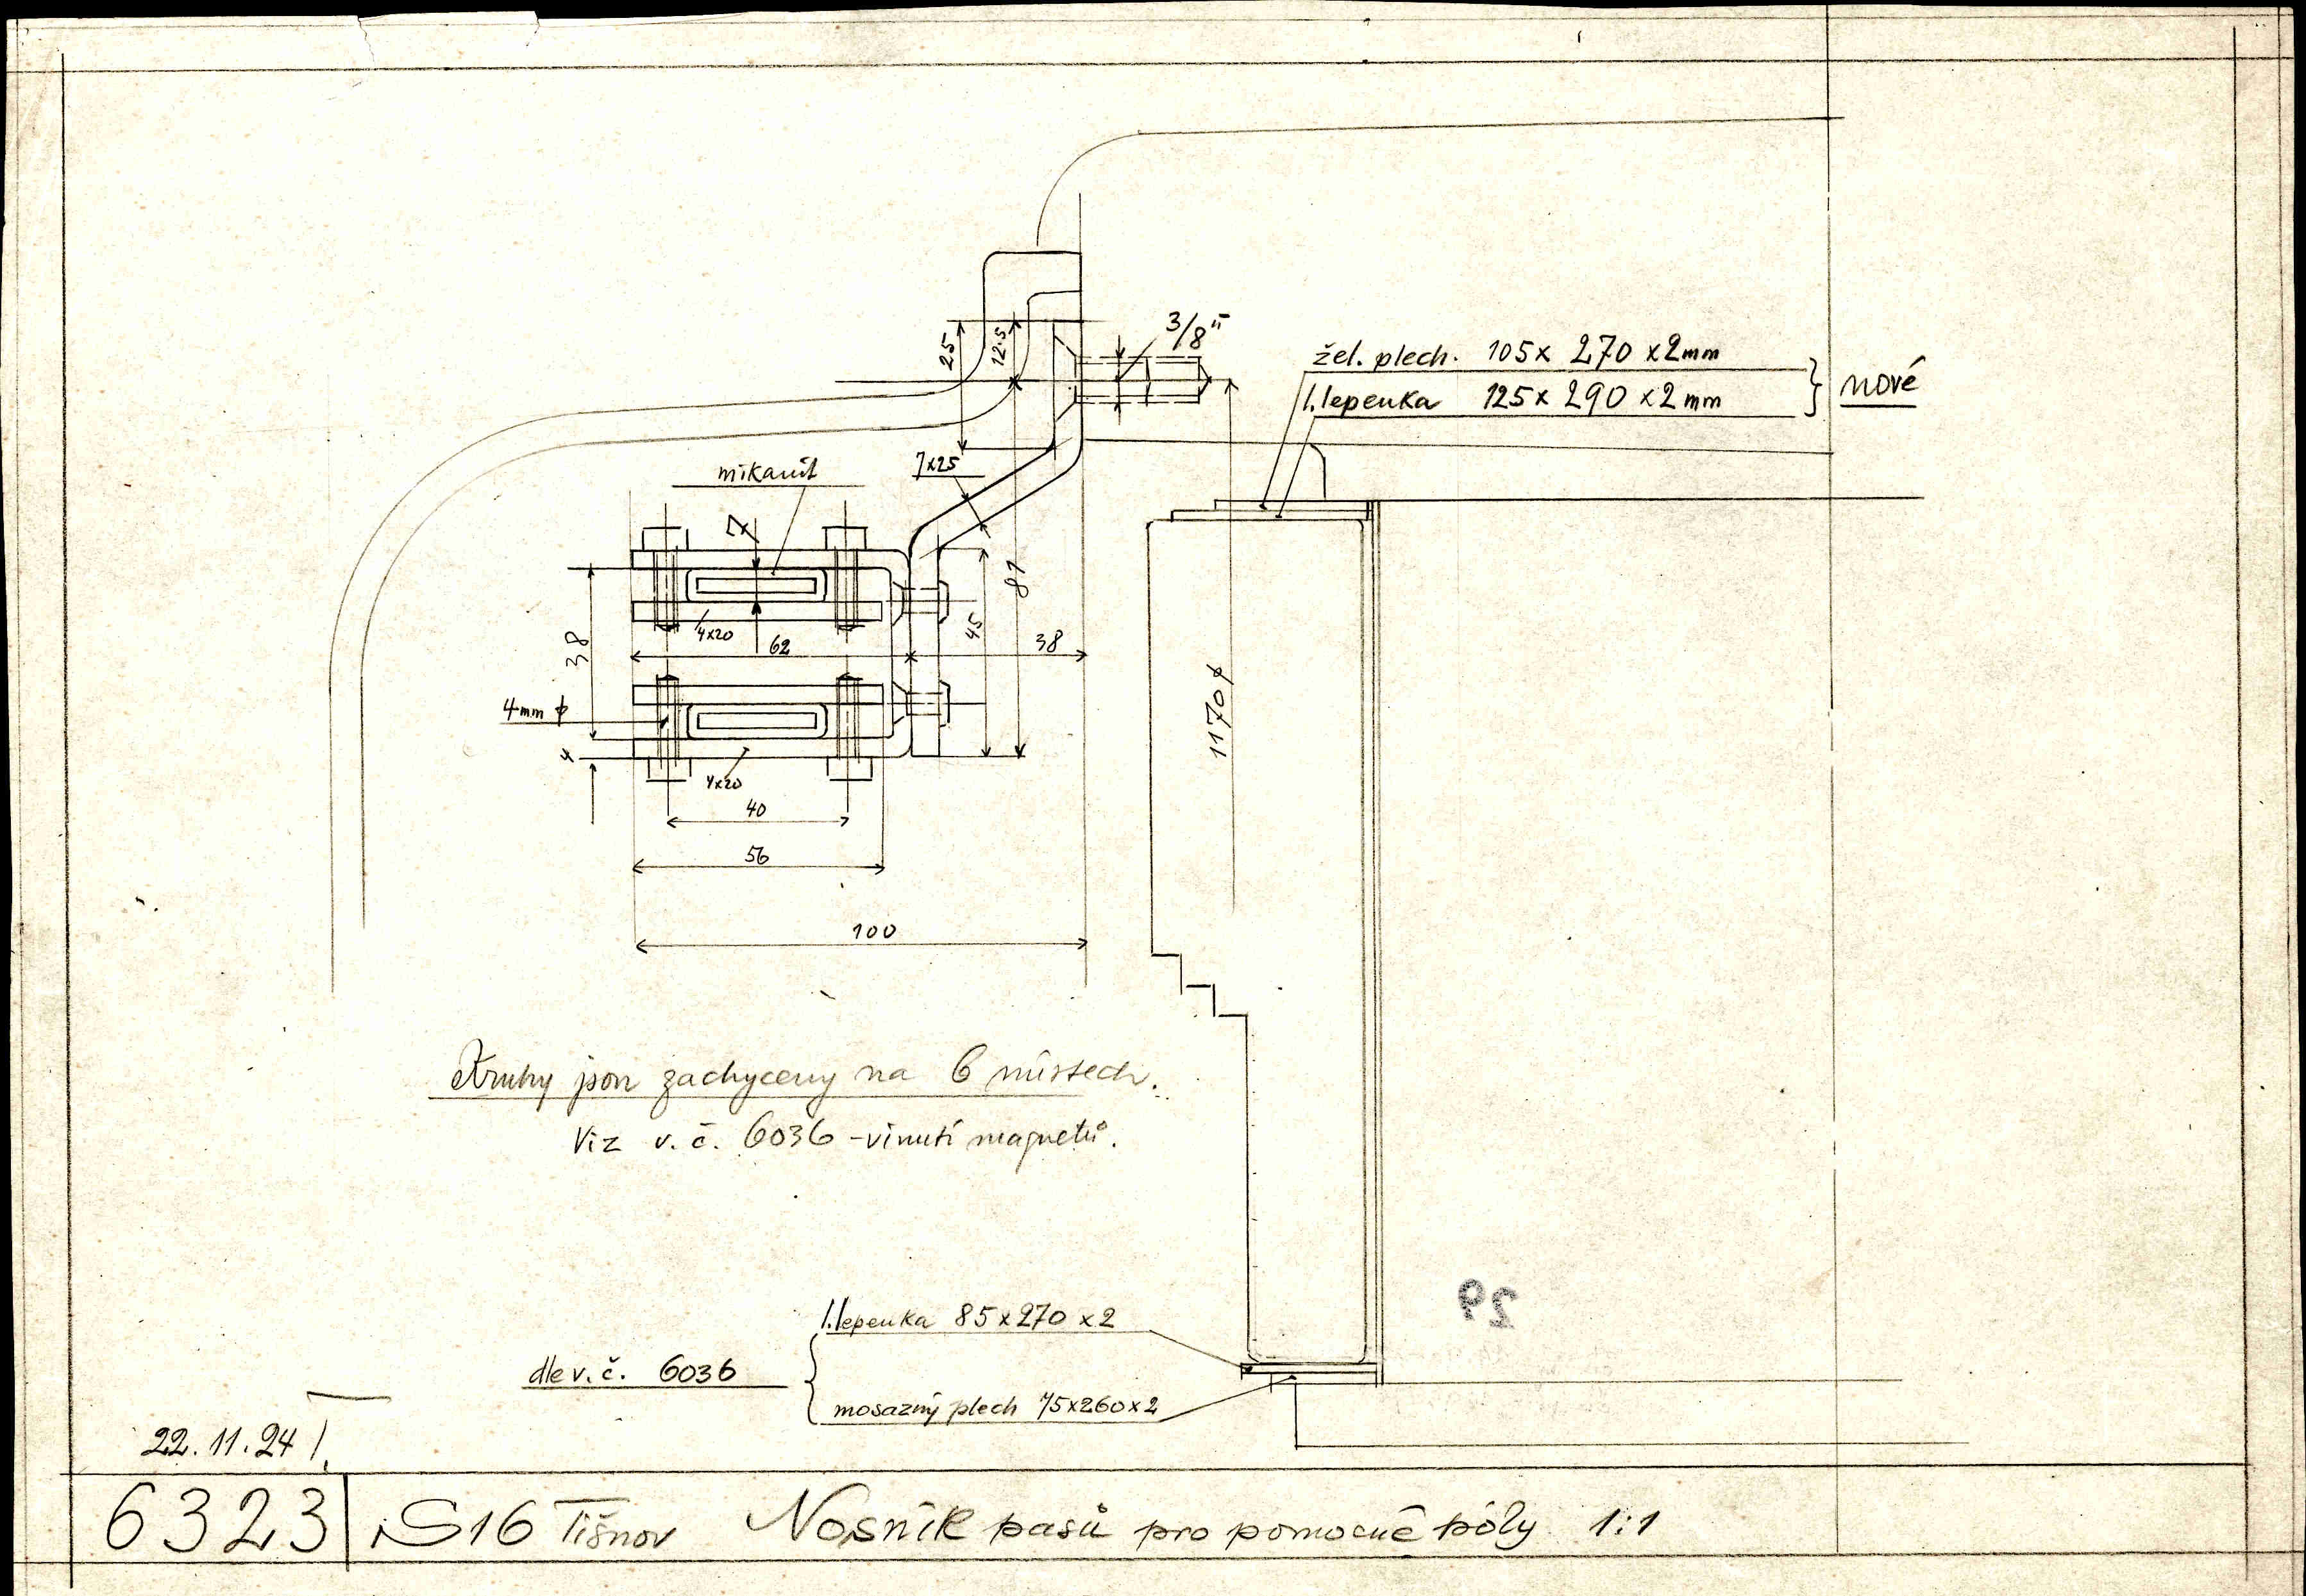 3/8"
25
12.5
žel. plech. 105 x 270 x 2mm
l. lepenka 125 x 290 x 2mm
nové
mikanit
7x25
7
4x20
62
38
45
81
38
4mm ϕ
4
4x20
40
56
100
1170 ϕ
Kruhy jsou zachyceny na 6 místech.
Viz v. č. 6036 - vinutí magnetů.
29
l. lepenka 85 x 270 x 2
dle v. č. 6036
mosazný plech 75x260x2
22.11.24
6323 S16 Tišnov Nosník pasů pro pomocné póly 1:1